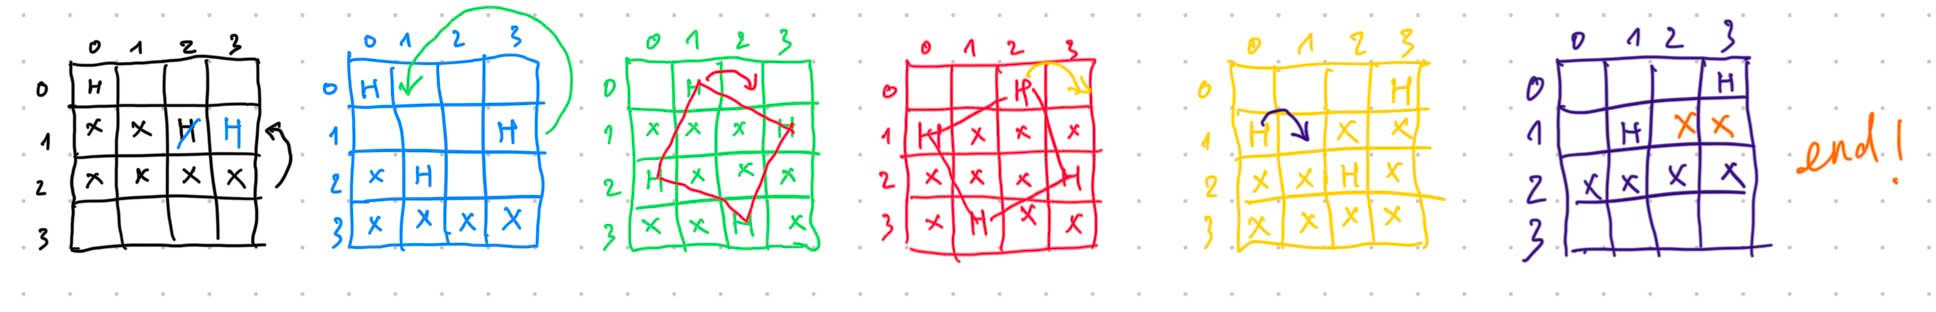 0 1 2 3
0 H
1 x x H H
2 x x x x
3
0 1 2 3
0 H
1 H
2 x H
3 x x x x
0 1 2 3
0 H
1 x x x H
2 H x x x
3 x x H x
0 1 2 3
0 H
1 H x x x
2 x x x H
3 x H x x
0 1 2 3
0 H
1 H x x
2 x x H x
3 x x x x
0 1 2 3
0 H
1 H x x
2 x x x x
3
end!